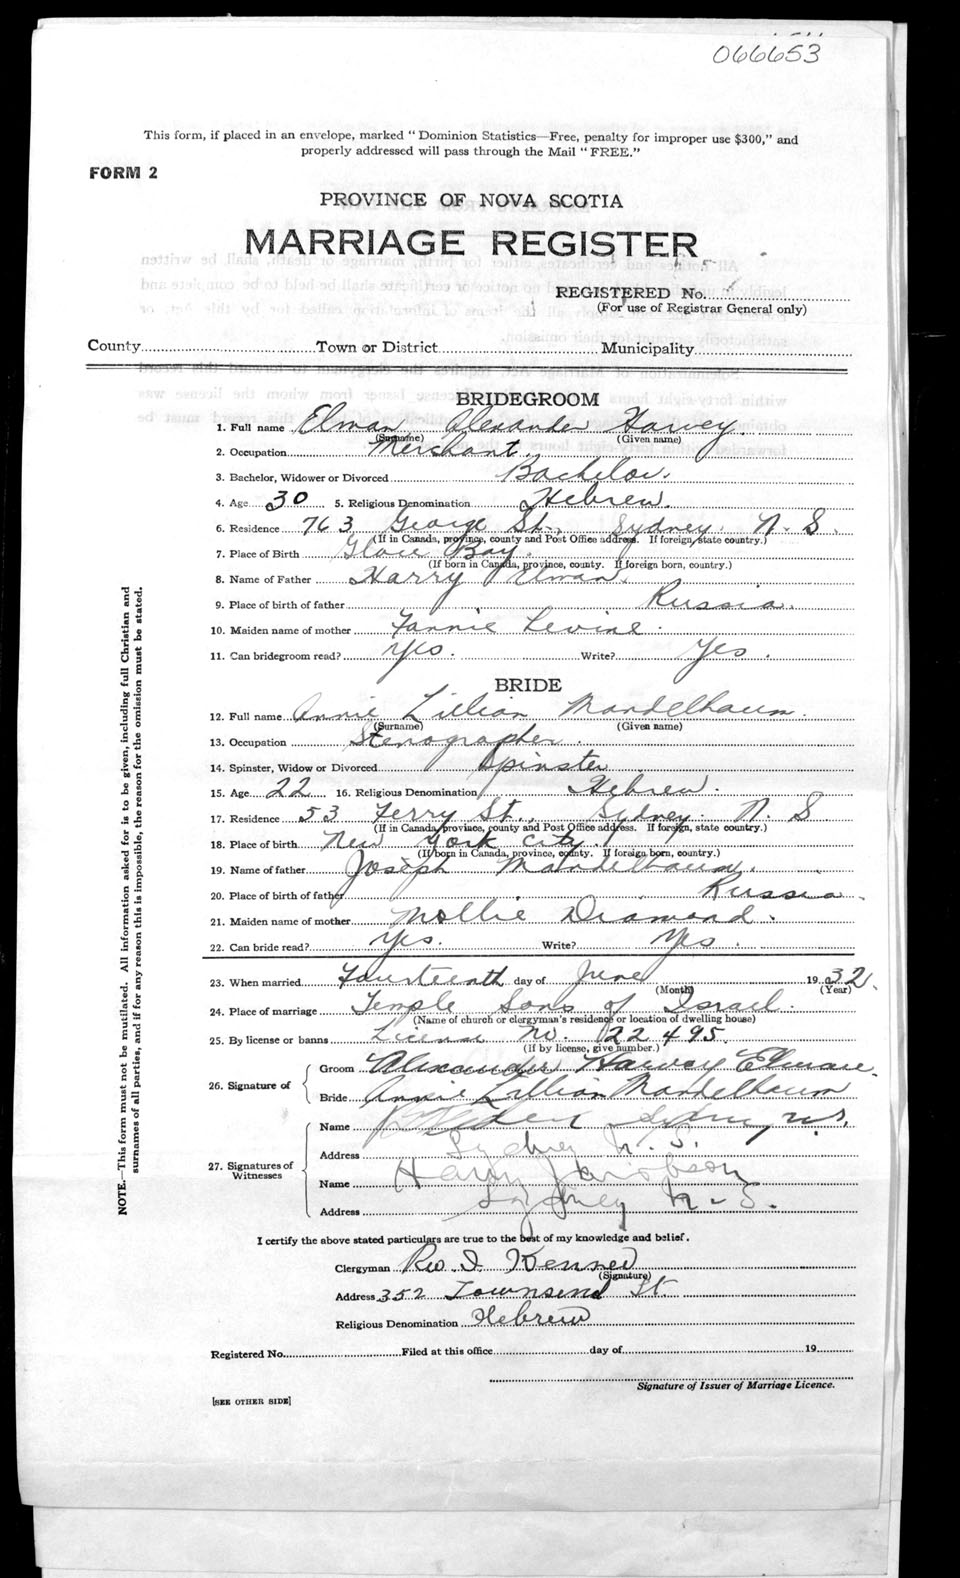 066653
This form, if placed in an envelope, marked "Dominion Statistics—Free, penalty for improper use $300," and
properly addressed will pass through the Mail "FREE."
FORM 2
PROVINCE OF NOVA SCOTIA
MARRIAGE REGISTER
REGISTERED No.
(For use of Registrar General only)
County Town or District Municipality
BRIDEGROOM
1. Full name Elman Alexander Harvey
(Surname) (Given name)
2. Occupation Merchant.
3. Bachelor, Widower or Divorced Bachelor.
4. Age 30 5. Religious Denomination Hebrew.
6. Residence 763 George St., Sydney. N. S.
(If in Canada, province, county and Post Office address. If foreign, state country.)
7. Place of Birth Glace Bay.
(If born in Canada, province, county. If foreign born, country.)
8. Name of Father Harry Elman.
9. Place of birth of father Russia.
10. Maiden name of mother Fannie Levine.
11. Can bridegroom read? Yes. Write? Yes.
BRIDE
12. Full name Annie Lillian Mandelbaum.
(Surname) (Given name)
13. Occupation Stenographer.
14. Spinster, Widow or Divorced Spinster
15. Age 22 16. Religious Denomination Hebrew.
17. Residence 53 Ferry St., Sydney. N. S
(If in Canada, province, county and Post Office address. If foreign, state country.)
18. Place of birth New York City.
(If born in Canada, province, county. If foreign born, country.)
19. Name of father Joseph Mandelbaum.
20. Place of birth of father Russia.
21. Maiden name of mother Mollie Diamond.
22. Can bride read? Yes. Write? Yes.
23. When married Fourteenth day of June 1932.
(Month) (Year)
24. Place of marriage Temple Sons of Israel.
(Name of church or clergyman's residence or location of dwelling house)
25. By license or banns License No. 22495.
(If by license, give number.)
26. Signature of
Groom Alexander Harvey Elman.
Bride Annie Lillian Mandelbaum
27. Signatures of Witnesses
Name Sydney N.S.
Address Sydney N. S.
Name Harry Jacobson
Address Sydney N-S.
I certify the above stated particulars are true to the best of my knowledge and belief.
Clergyman Rev. I. Kenned
(Signature)
Address 352 Townsend St
Religious Denomination Hebrew
Registered No. Filed at this office day of 19
Signature of Issuer of Marriage Licence.
[SEE OTHER SIDE]
NOTE.—This form must not be mutilated. All information asked for is to be given, including full Christian and
surnames of all parties, and if for any reason this is impossible, the reason for the omission must be stated.